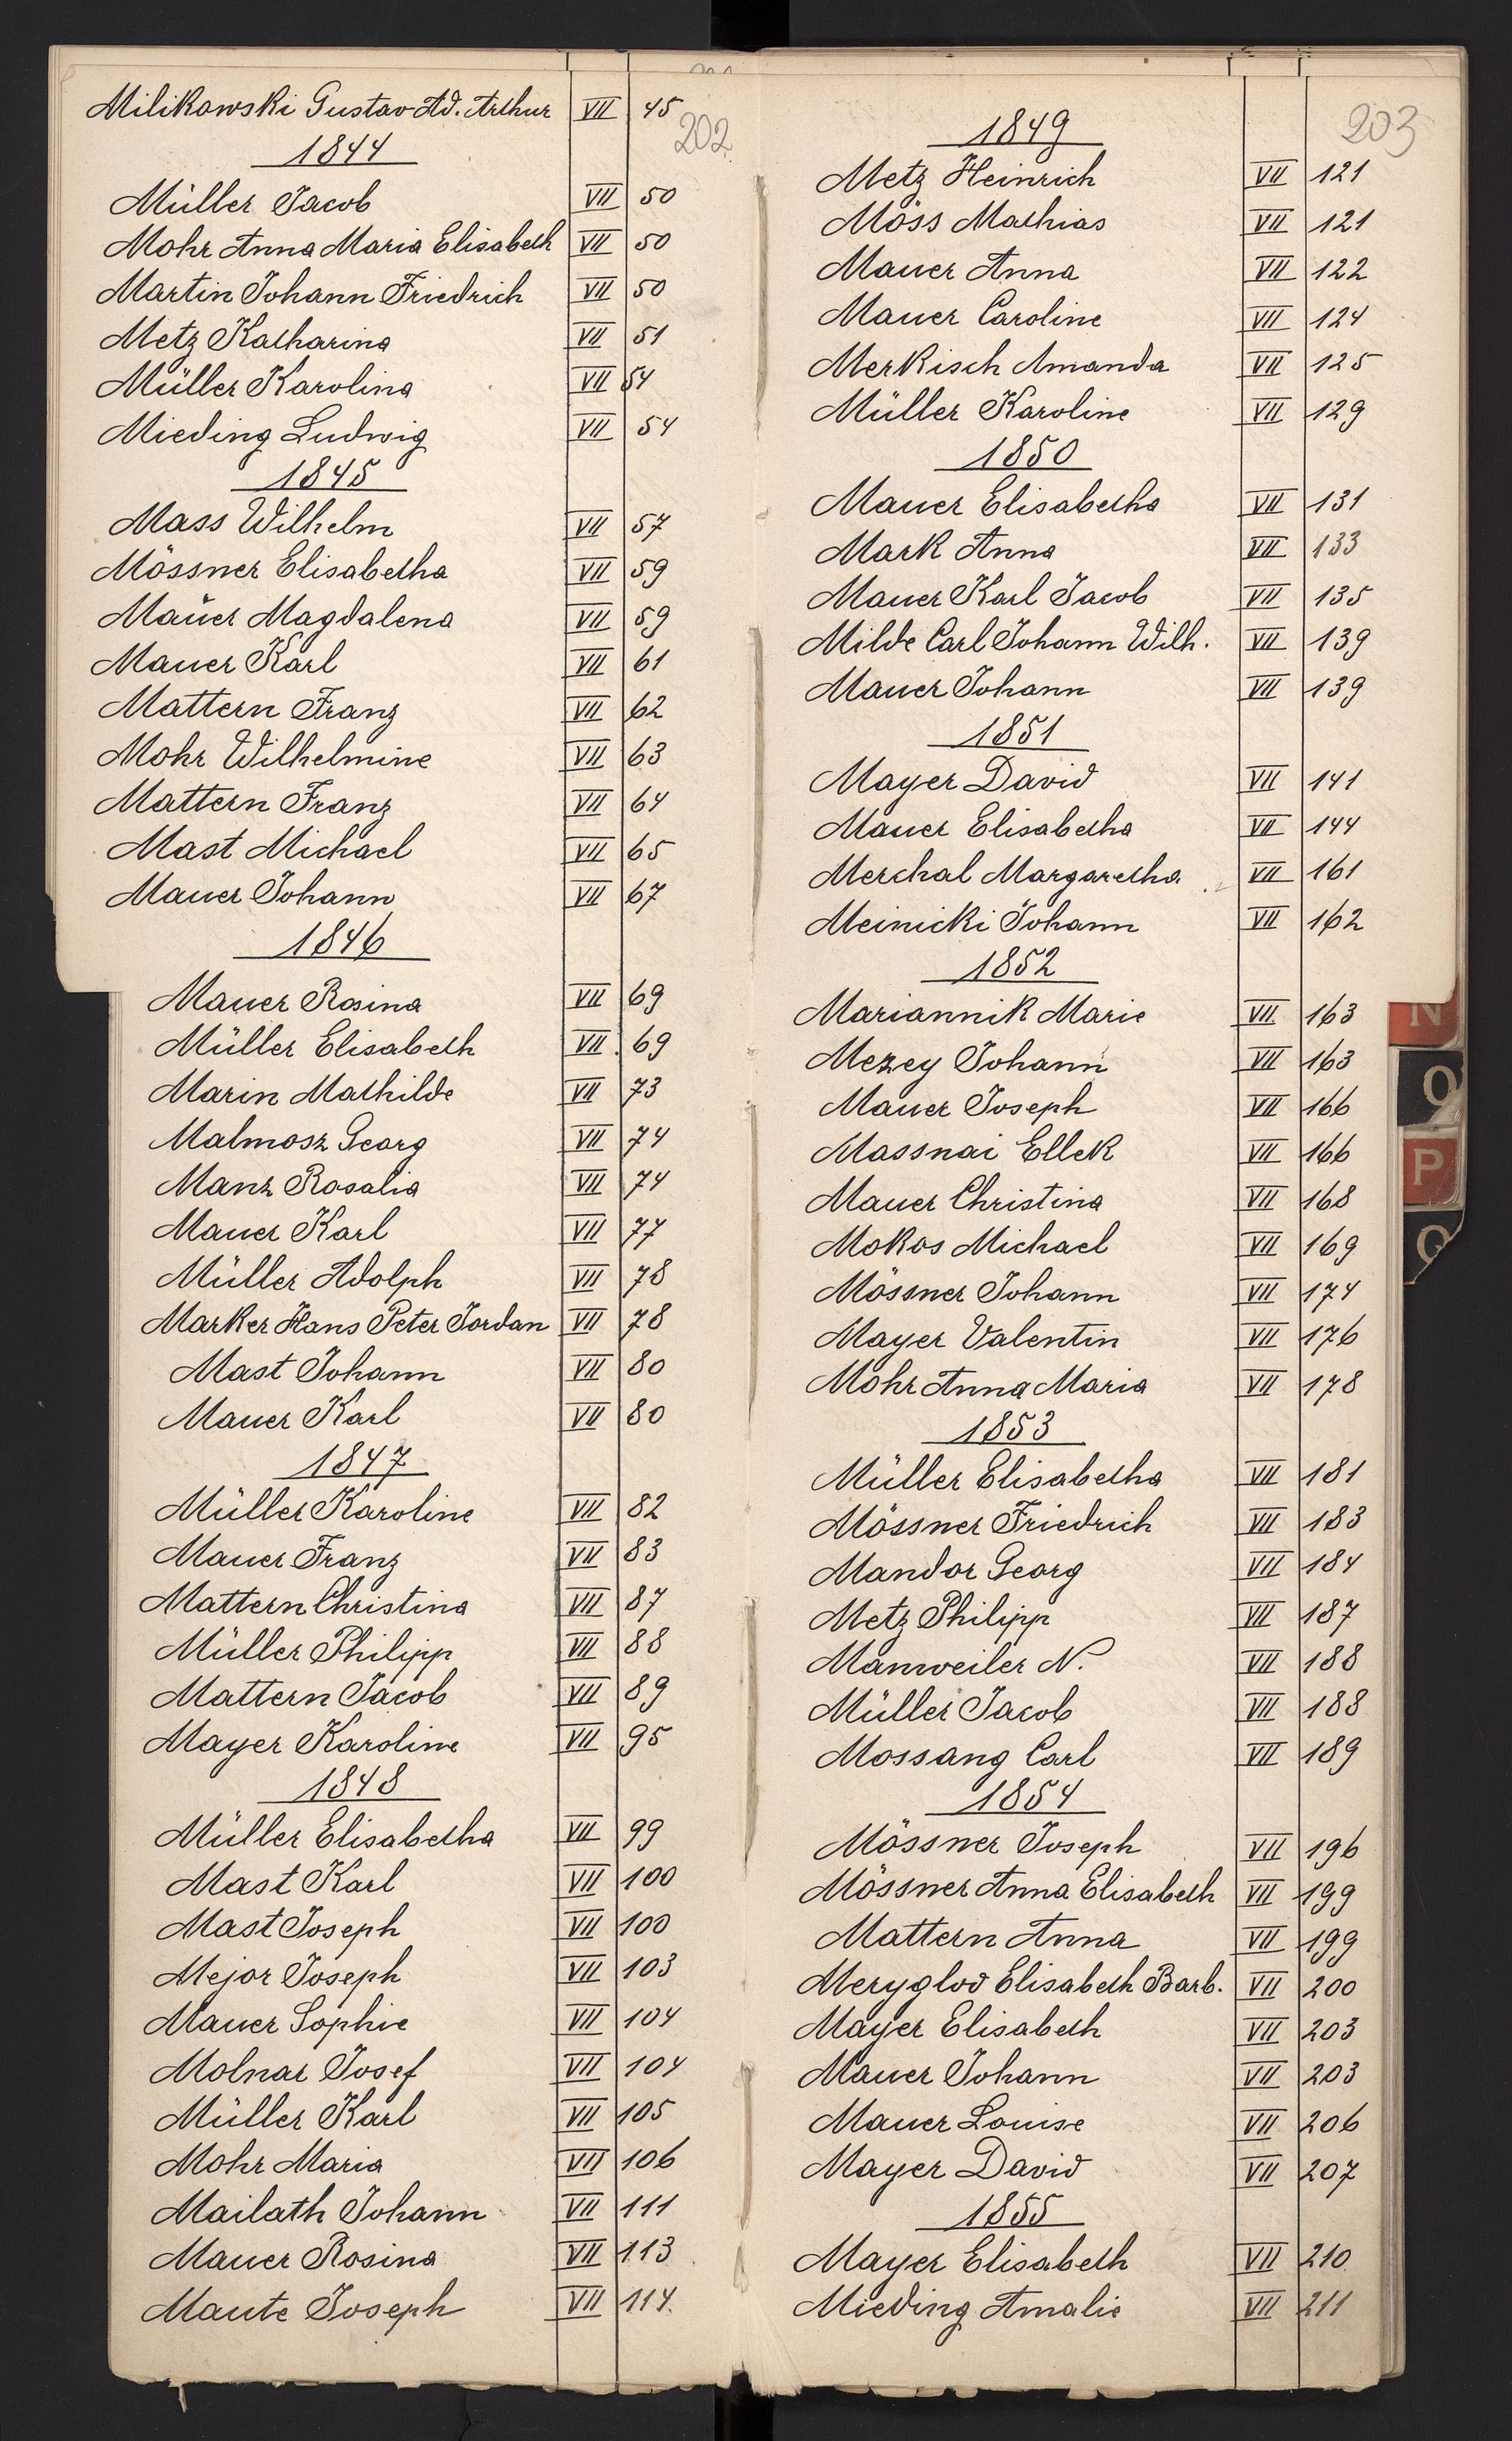 Milikowski Gustav Ad. Arthur VII 45
202
1844
Müller Jacob VII 50
Mohr Anna Maria Elisabeth VII 50
Martin Johann Friedrich VII 50
Metz Katharina VII 51
Müller Karolina VII 54
Mieding Ludwig VII 54
1845
Mass Wilhelm VII 57
Mössner Elisabetha VII 59
Mauer Magdalena VII 59
Mauer Karl VII 61
Mattern Franz VII 62
Mohr Wilhelmine VII 63
Mattern Franz VII 64
Mast Michael VII 65
Mauer Johann VII 67
1846
Mauer Rosina VII 69
Müller Elisabeth VII 69
Marin Mathilde VII 73
Malmosz Georg VII 74
Manz Rosalia VII 74
Mauer Karl VII 77
Müller Adolph VII 78
Marker Hans Peter Jordan VII 78
Mast Johann VII 80
Mauer Karl VII 80
1847
Müller Karoline VII 82
Mauer Franz VII 83
Mattern Christina VII 87
Müller Philipp VII 88
Mattern Jacob VII 89
Mayer Karoline VII 95
1848
Müller Elisabetha VII 99
Mast Karl VII 100
Mast Joseph VII 100
Mejor Joseph VII 103
Mauer Sophie VII 104
Molnar Josef VII 104
Müller Karl VII 105
Mohr Maria VII 106
Mailath Johann VII 111
Mauer Rosina VII 113
Maute Joseph VII 114
203
1849
Metz Heinrich VII 121
Möss Mathias VII 121
Mauer Anna VII 122
Mauer Caroline VII 124
Merkisch Amanda VII 125
Müller Karoline VII 129
1850
Mauer Elisabetha VII 131
Mark Anna VII 133
Mauer Karl Jacob VII 135
Milde Carl Johann Wilh. VII 139
Mauer Johann VII 139
1851
Mayer David VII 141
Mauer Elisabetha VII 144
Merchal Margaretha VII 161
Meinicki Johann VII 162
1852
Mariannik Marie VII 163
Mezey Johann VII 163
Mauer Joseph VII 166
Massnai Ellek VII 166
Mauer Christina VII 168
Mokos Michael VII 169
Mössner Johann VII 174
Mayer Valentin VII 176
Mohr Anna Maria VII 178
1853
Müller Elisabetha VII 181
Mössner Friedrich VII 183
Mandor Georg VII 184
Metz Philipp VII 187
Manweiler N. VII 188
Müller Jacob VII 188
Mossang Carl VII 189
1854
Mössner Joseph VII 196
Mössner Anna Elisabeth VII 199
Mattern Anna VII 199
Meryglod Elisabeth Barb. VII 200
Mayer Elisabeth VII 203
Mauer Johann VII 203
Mauer Louise VII 206
Mayer David VII 207
1855
Mayer Elisabeth VII 210
Mieding Amalie VII 211
N
O
P
Q